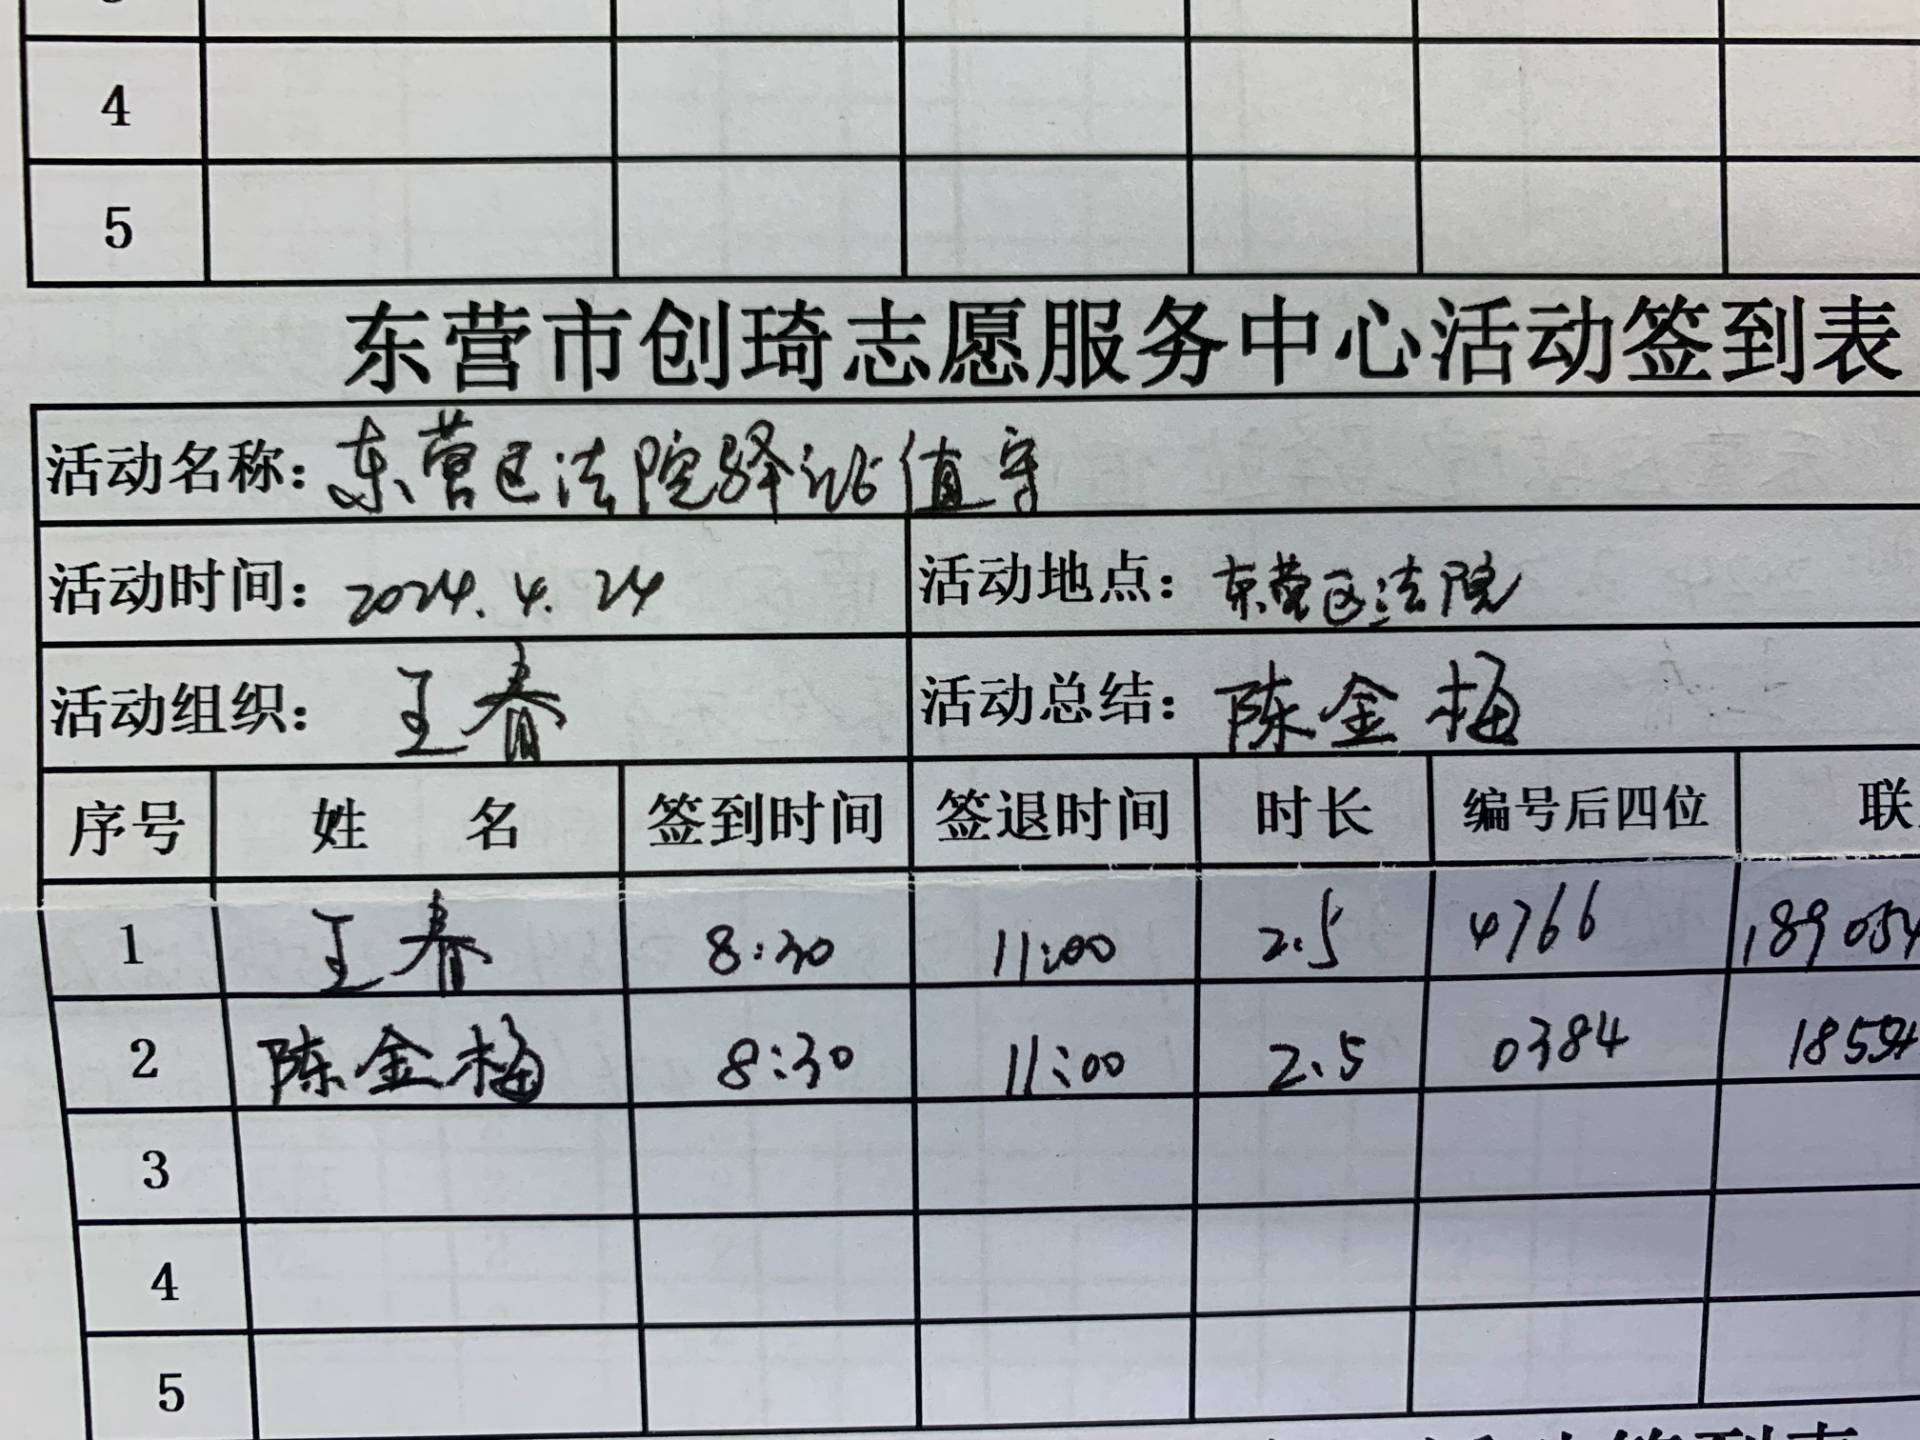 4
5
东营市创琦志愿服务中心活动签到表
活动名称：东营区法院驿站值守
活动时间：2024.4.24 活动地点：东营区法院
活动组织：王春 活动总结：陈金梅
序号 姓 名 签到时间 签退时间 时长 编号后四位 联
1 王春 8:30 11:00 2.5 4766 189054
2 陈金梅 8:30 11:00 2.5 0384 18554
3
4
5